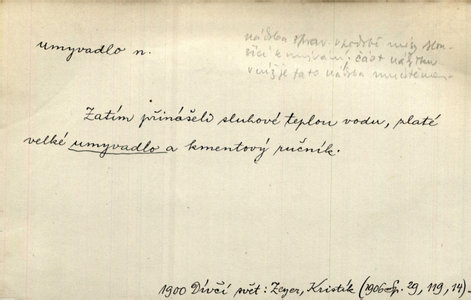 umyvadlo n.
nádoba zprav. v podobě mísy slou-
žící k mývání; část nábytku
v níž je tato nádoba
Zatím přinášeli sluhové teplou vodu, zlaté
velké umyvadlo a kmentový ručník.
1900 Dívčí svět: Zeyer, Kristík (1906 Sp. 29, 119, 14).